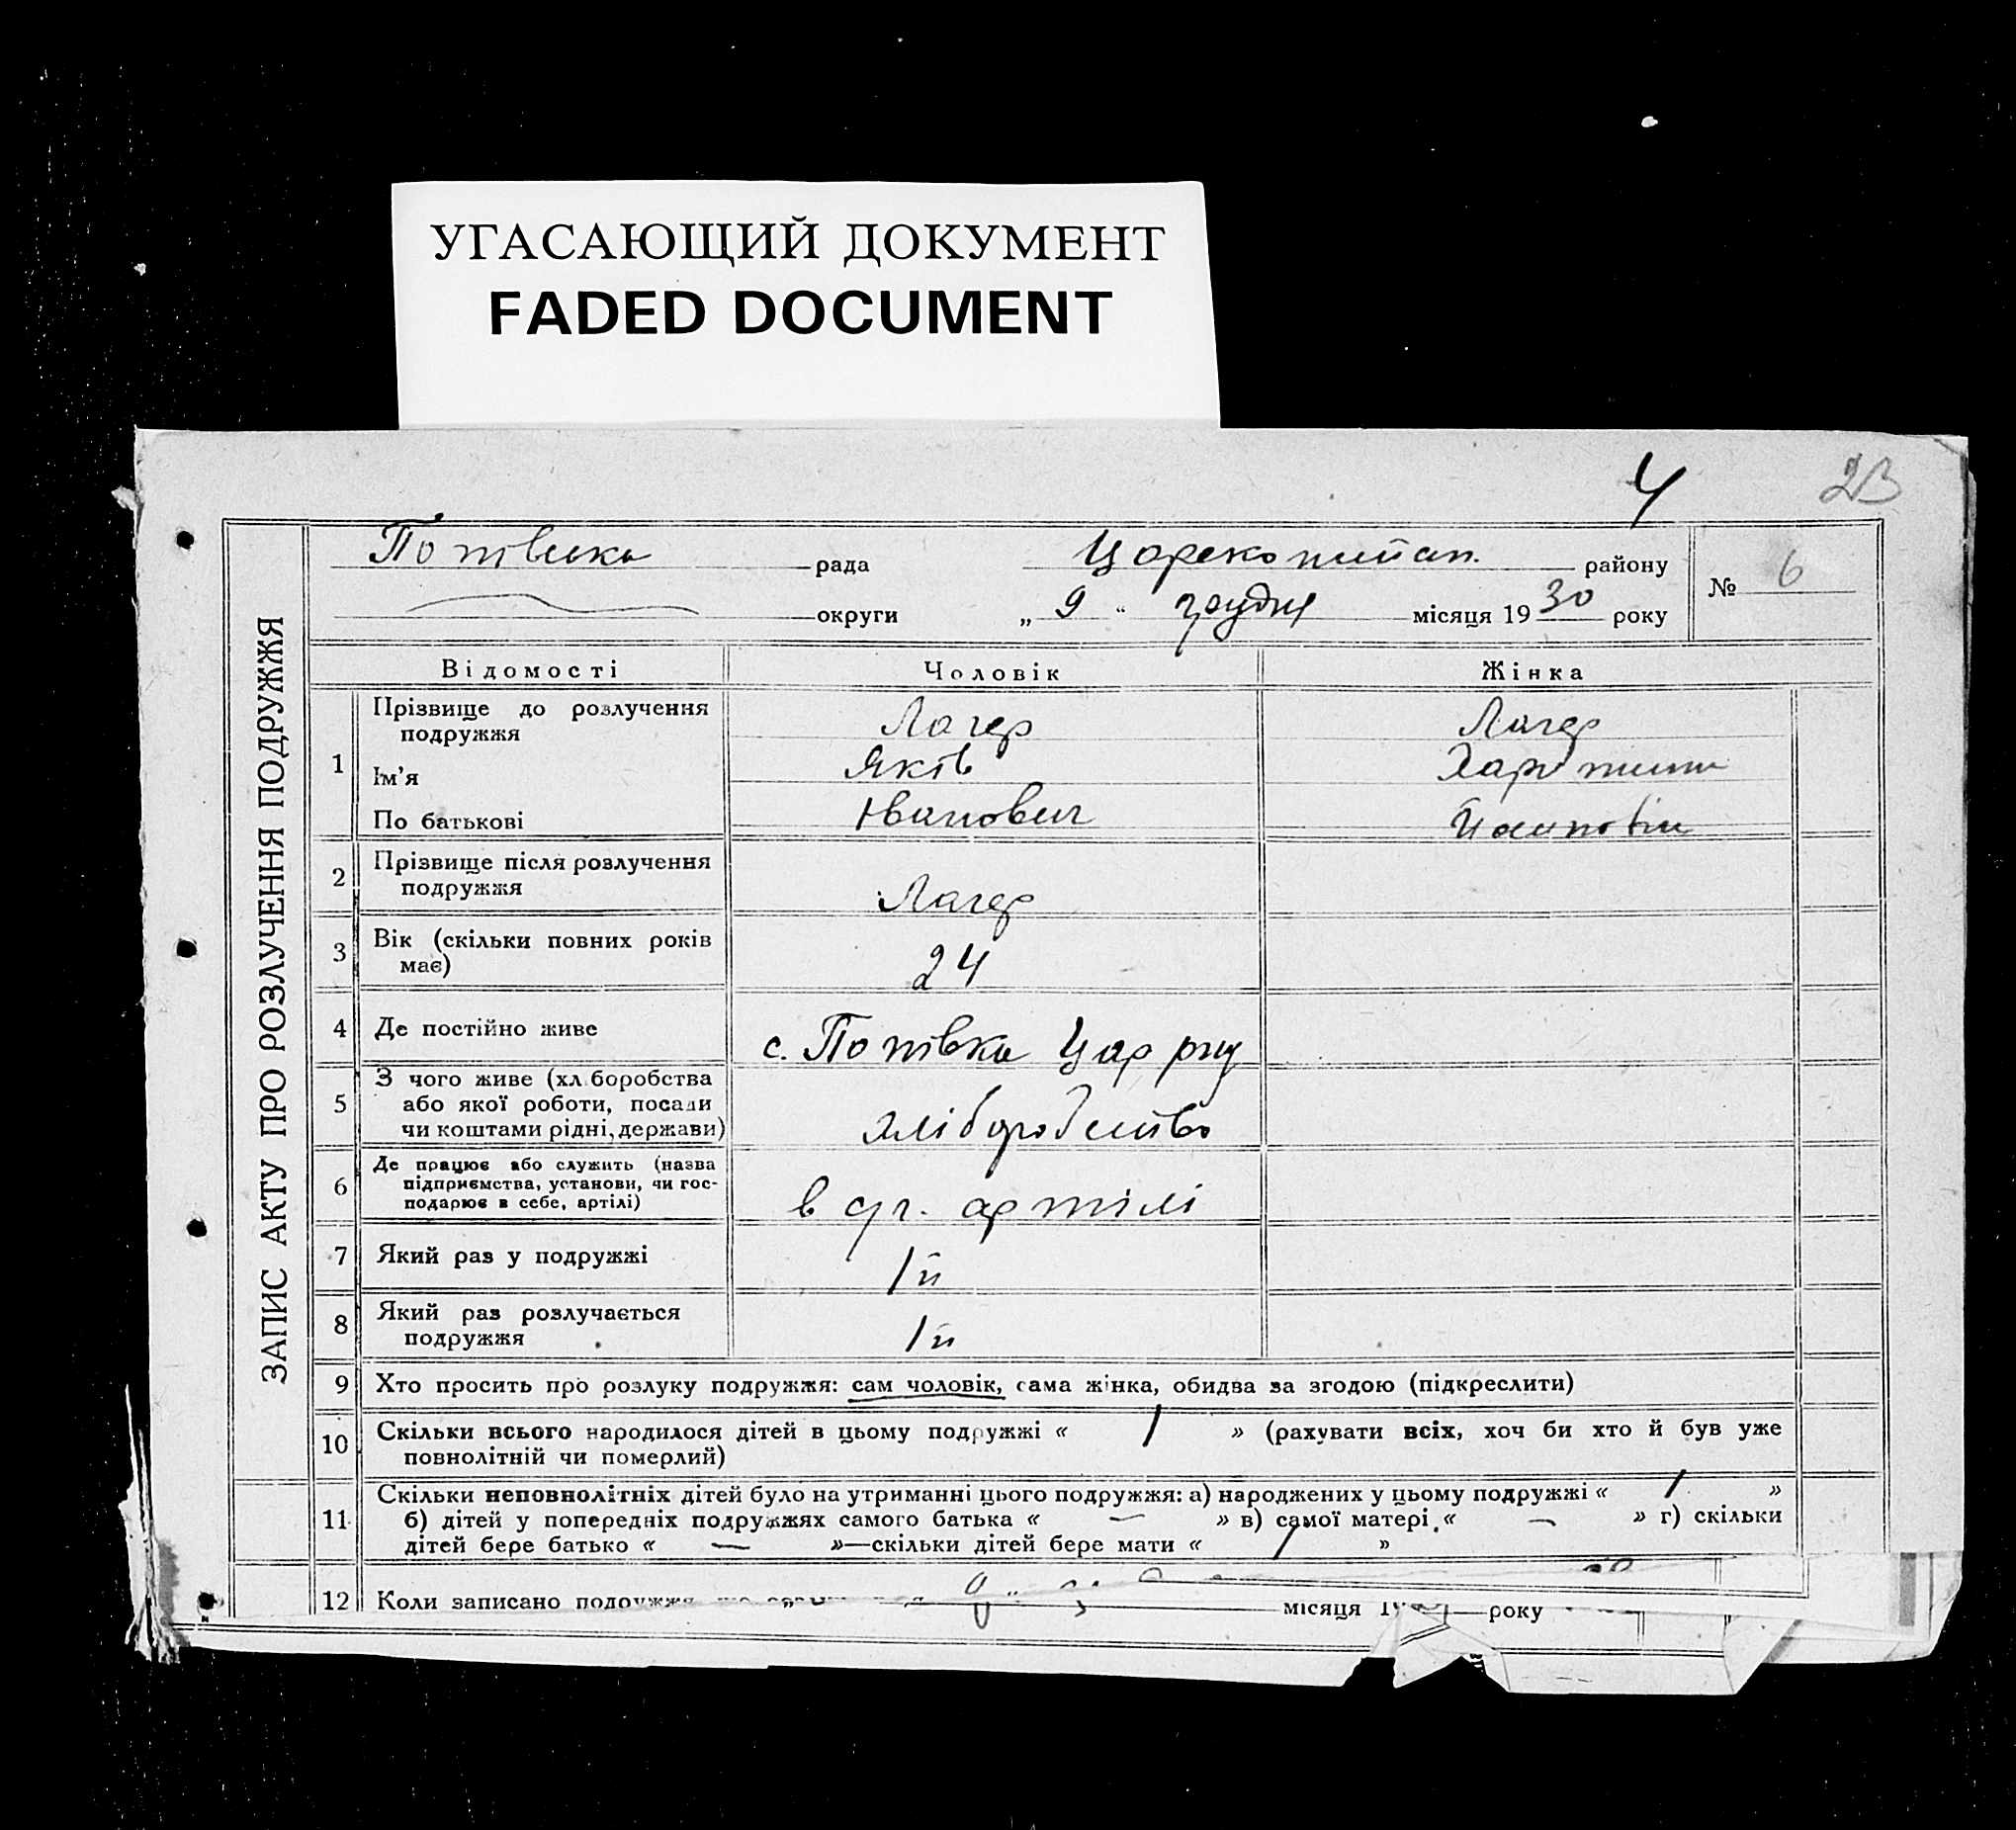 УГАСАЮЩИЙ ДОКУМЕНТ
FADED DOCUMENT
4
23
ЗАПИС АКТУ ПРО РОЗЛУЧЕННЯ ПОДРУЖЖЯ
рада району
№ 6
округи „ 9 “ грудня місяця 1930 року
Відомості Чоловік Жінка
1
Прізвище до розлучення Лагер Лагер
подружжя
Ім’я Яків
По батькові Іванович
2 Прізвище після розлучення
подружжя Лагер
3 Вік (скільки повних років
має) 24
4 Де постійно живе с. Потівка Цар
5 З чого живе (хл боробства
або якої роботи, посади
чи коштами рідні, держави) хліборобство
6 Де працює або служить (назва
підприємства, установи, чи гос-
подарює в себе, артілі) в артілі
7 Який раз у подружжі 1й
8 Який раз розлучається
подружжя 1й
9 Хто просить про розлуку подружжя: сам чоловік, сама жінка, обидва за згодою (підкреслити)
10 Скільки всього народилося дітей в цьому подружжі « 1 » (рахувати всіх, хоч би хто й був уже
повнолітній чи померлий)
11 Скільки неповнолітніх дітей було на утриманні цього подружжя: а) народжених у цьому подружжі « 1 »
б) дітей у попередніх подружжях самого батька « — » в) самої матері « — » г) скільки
дітей бере батько « — »—скільки дітей бере мати « 1 »
12 Коли записано подружжя місяця року